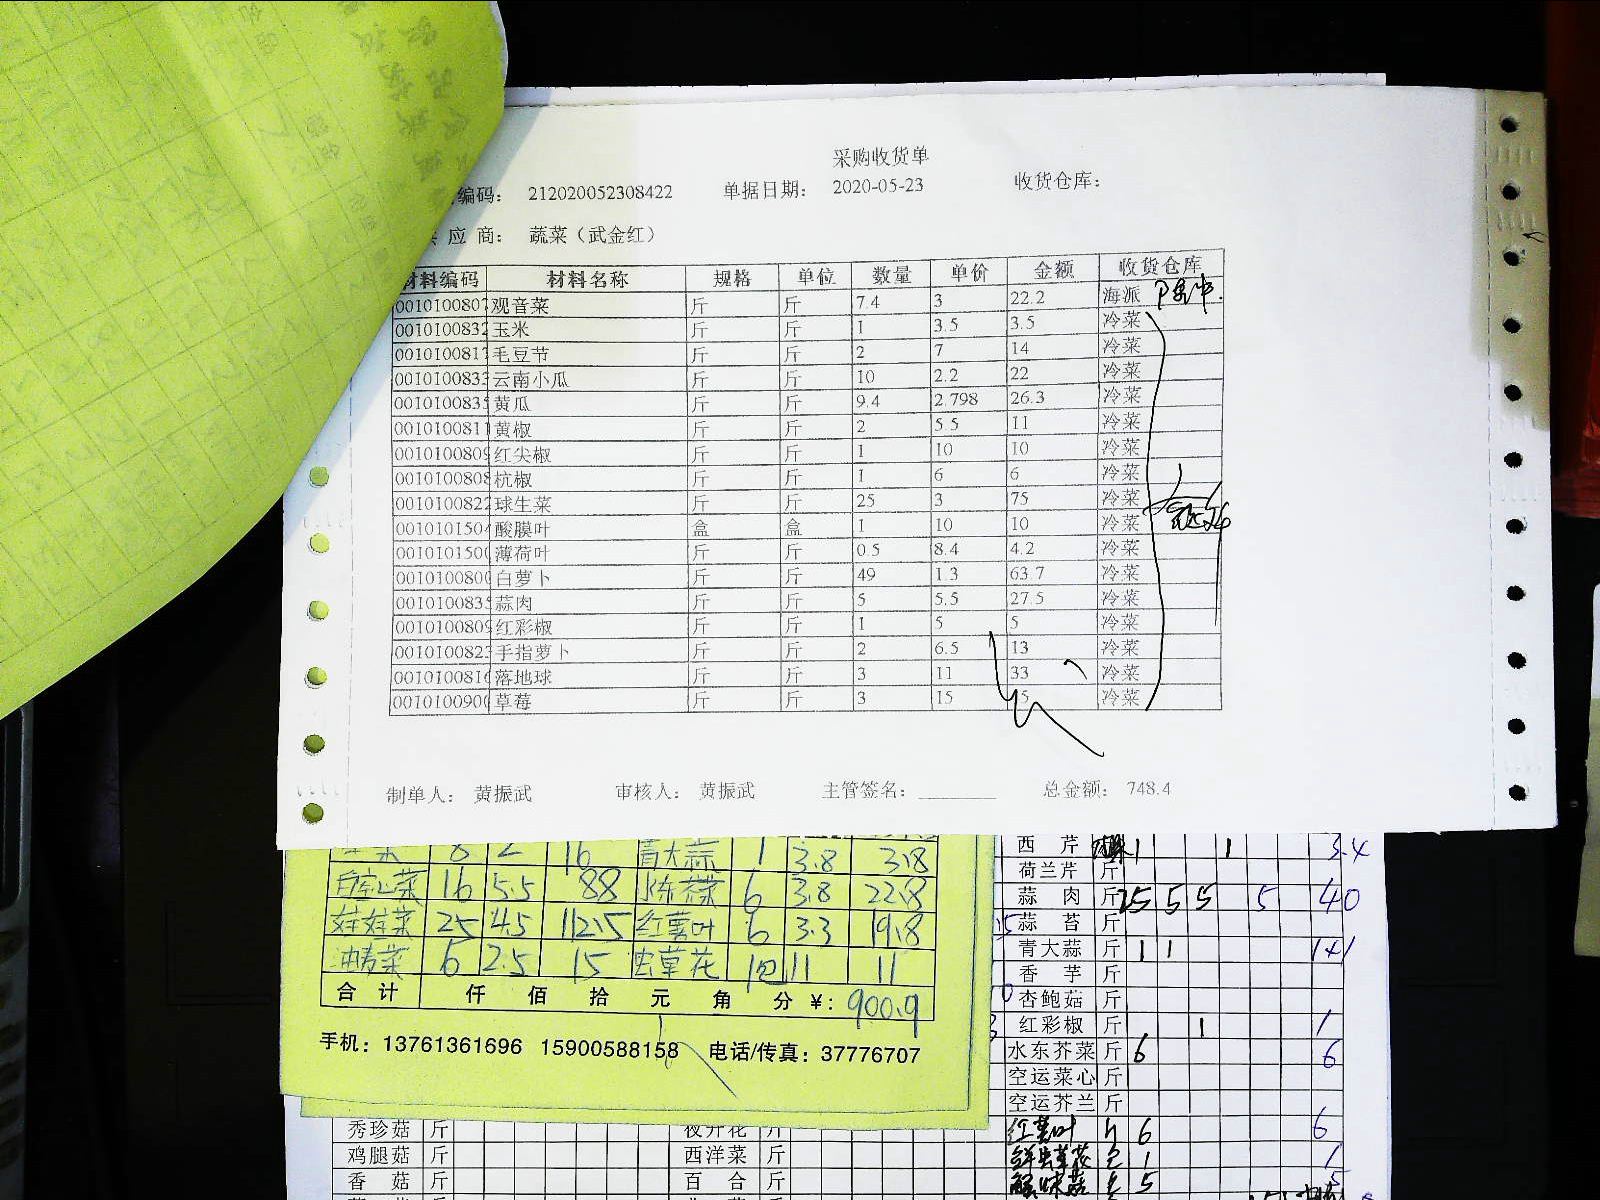 采购收货单
编码： 212020052308422 单据日期： 2020-05-23 收货仓库：
应 商： 蔬菜（武金红）
材料编码 材料名称 规格 单位 数量 单价 金额 收货仓库
0010100807 观音菜 斤 斤 7.4 3 22.2 海派
0010100832 玉米 斤 斤 1 3.5 3.5 冷菜
001010081 毛豆节 斤 斤 2 7 14 冷菜
001010083 云南小瓜 斤 斤 10 2.2 22 冷菜
001010083 黄瓜 斤 斤 9.4 2.798 26.3 冷菜
001010081 黄椒 斤 斤 2 5.5 11 冷菜
001010080 红尖椒 斤 斤 1 10 10 冷菜
001010080 杭椒 斤 斤 1 6 6 冷菜
001010082 球生菜 斤 斤 25 3 75 冷菜
001010150 酸膜叶 盒 盒 1 10 10 冷菜
001010150 薄荷叶 斤 斤 0.5 8.4 4.2 冷菜
001010080 白萝卜 斤 斤 49 1.3 63.7 冷菜
001010083 蒜肉 斤 斤 5 5.5 27.5 冷菜
001010080 红彩椒 斤 斤 1 5 5 冷菜
001010082 手指萝卜 斤 斤 2 6.5 13 冷菜
001010081 落地球 斤 斤 3 11 33 冷菜
001010090 草莓 斤 斤 3 15 5 冷菜
制单人： 黄振武 审核人： 黄振武 主管签名： 总金额： 748.4
8 2 16 青大蒜 1 3.8 3.8
16 5.5 88 6 3.8 22.8
娃娃菜 25 4.5 112.5 红薯叶 6 3.3 19.8
油麦菜 6 2.5 15 虫草花 1包 11 11
合 计 仟 佰 拾 元 角 分 ¥: 900.9
手机：13761361696 15900588158 电话/传真：37776707
西 芹 1 1 3.4
荷兰芹 斤
蒜 肉 斤 25 5 5 5 40
蒜 苔 斤
青大蒜 斤 1 1 1+1
香 芋 斤
杏鲍菇 斤
红彩椒 斤 1 1
水东芥菜 斤 6 6
空运菜心 斤
空运芥兰 斤
秀珍菇 斤 夜开花 斤 红薯叶 斤 6 6
鸡腿菇 斤 西洋菜 斤 鲜虫草花 包 1 1
香 菇 斤 百 合 斤 蟹味菇 包 5 5